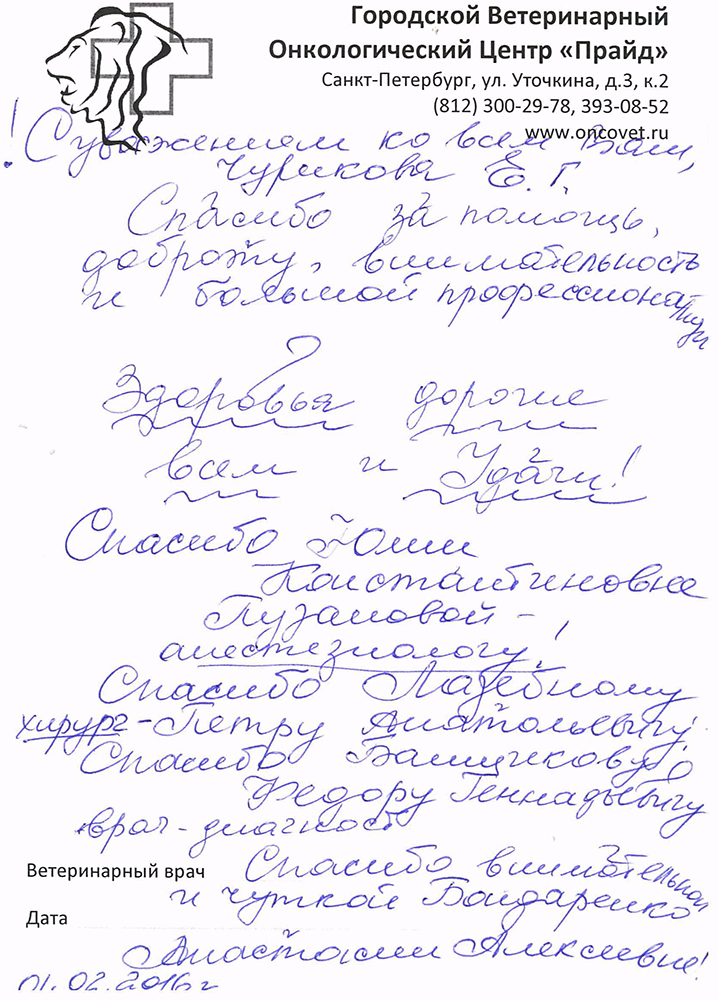 Городской Ветеринарный
Онкологический Центр «Прайд»
Санкт-Петербург, ул. Уточкина, д.3, к.2
(812) 300-29-78, 393-08-52
www.oncovet.ru
! С уважением ко всем Вам,
Чурикова Е. Г.
Спасибо за помощь,
доброту, внимательность
и большой профессионализм
Здоровья дорогие
всем и Удачи!
Спасибо Юлии
Константиновне
Пузановой -
анестезиологу!
Спасибо Лазебному
хирург - Петру Анатольевичу
Спасибо
Федору Геннадьевичу
врач - диагност
Ветеринарный врач
Спасибо внимательной
и чуткой Бондаренко
Дата
Анастасии Алексеевне!
01.02.2016г